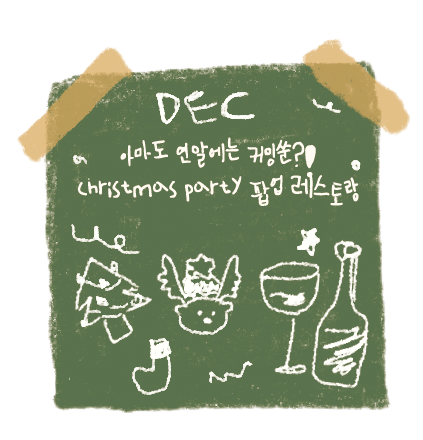 DEC
아마도 연말에는 커밍쑨?!
christmas party 팝업 레스토랑